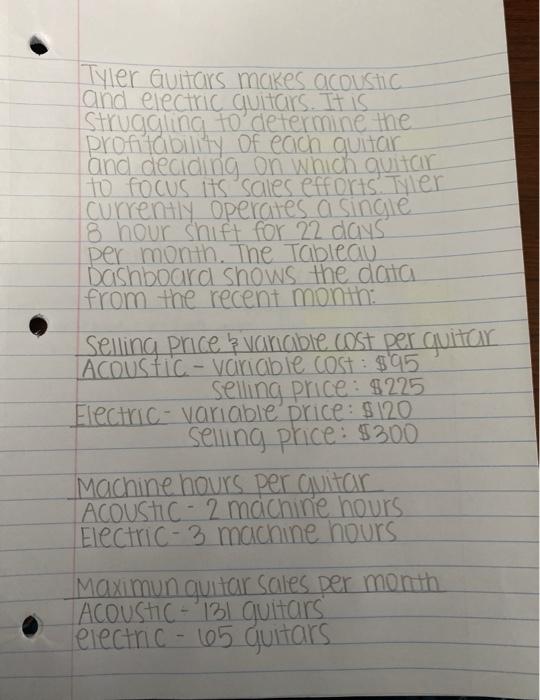 Tyler Guitars makes acoustic
and electric guitars. It is
struggling to determine the
profitability of each guitar
and deciding on which guitar
to focus its sales efforts. Tyler
currently operates a single
8 hour shift for 22 days
per month. The Tableau
Dashboard shows the data
from the recent month:
Selling price & variable cost per guitar
Acoustic - variable cost: $95
selling price: $225
Electric - variable price: $120
selling price: $300
Machine hours per guitar
Acoustic - 2 machine hours
Electric - 3 machine hours
Maximun guitar sales per month
Acoustic - 131 guitars
electric - 65 guitars